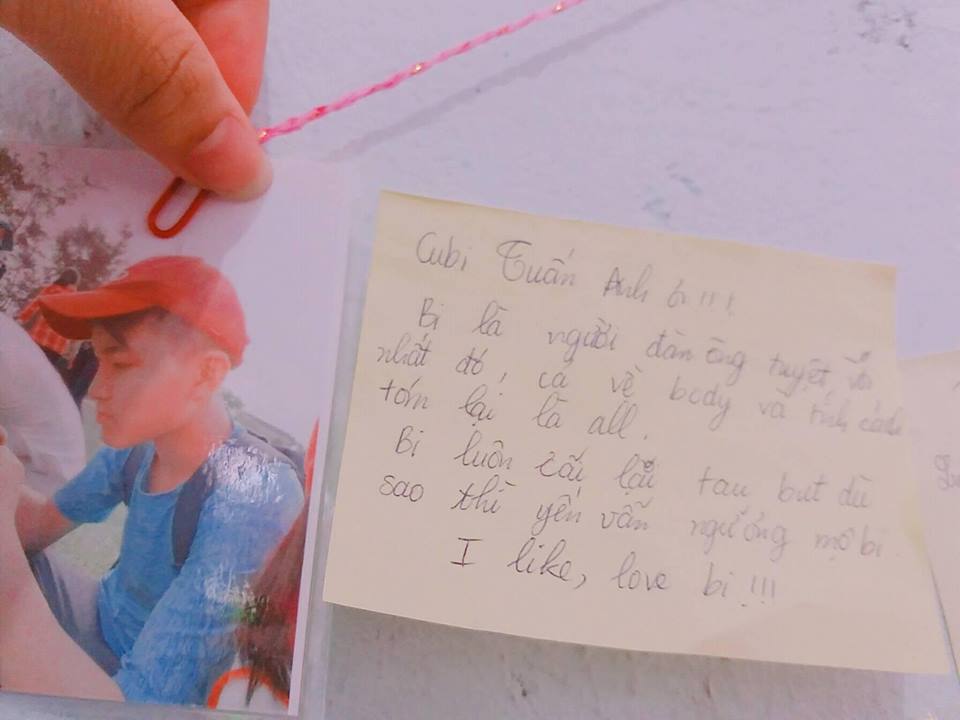 Cubi Tuấn Anh bi !!!
Bi là người đàn ông tuyệt vời
nhất đó, cả về body và tính cách
tóm lại là all.
Bi luôn cãi lại tau but dù
sao thì yến vẫn ngưỡng mộ bi
I like, love bi !!!